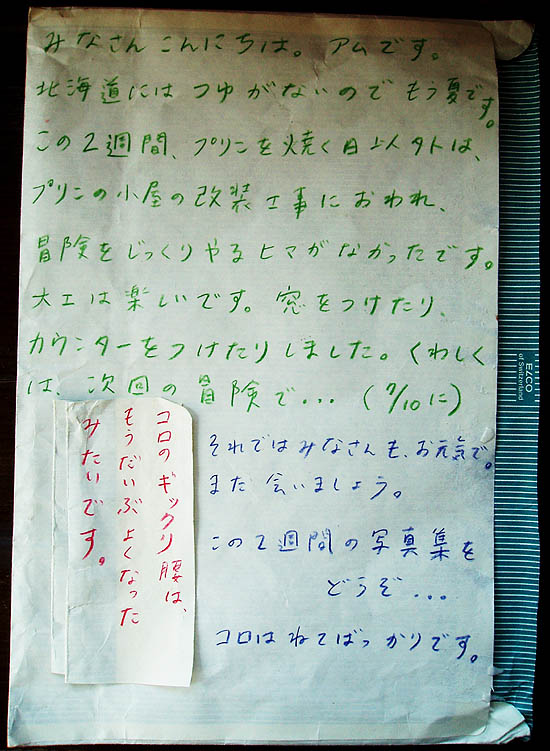 みなさんこんにちは。アムです。
北海道にはつゆがないのでもう夏です。
この2週間、プリンを焼く日以外は、
プリンの小屋の改装工事におわれ、
冒険をじっくりやるヒマがなかったです。
大工は楽しいです。窓をつけたり、
カウンターをつけたりしました。くわしく
は、次回の冒険で...(7/10に)
コロのギックリ腰は、
もうだいぶよくなった
みたいです。
それではみなさんも、お元気で。
また会いましょう。
この2週間の写真集を
どうぞ...
コロはねてばっかりです。
EZCO
of Switzerland